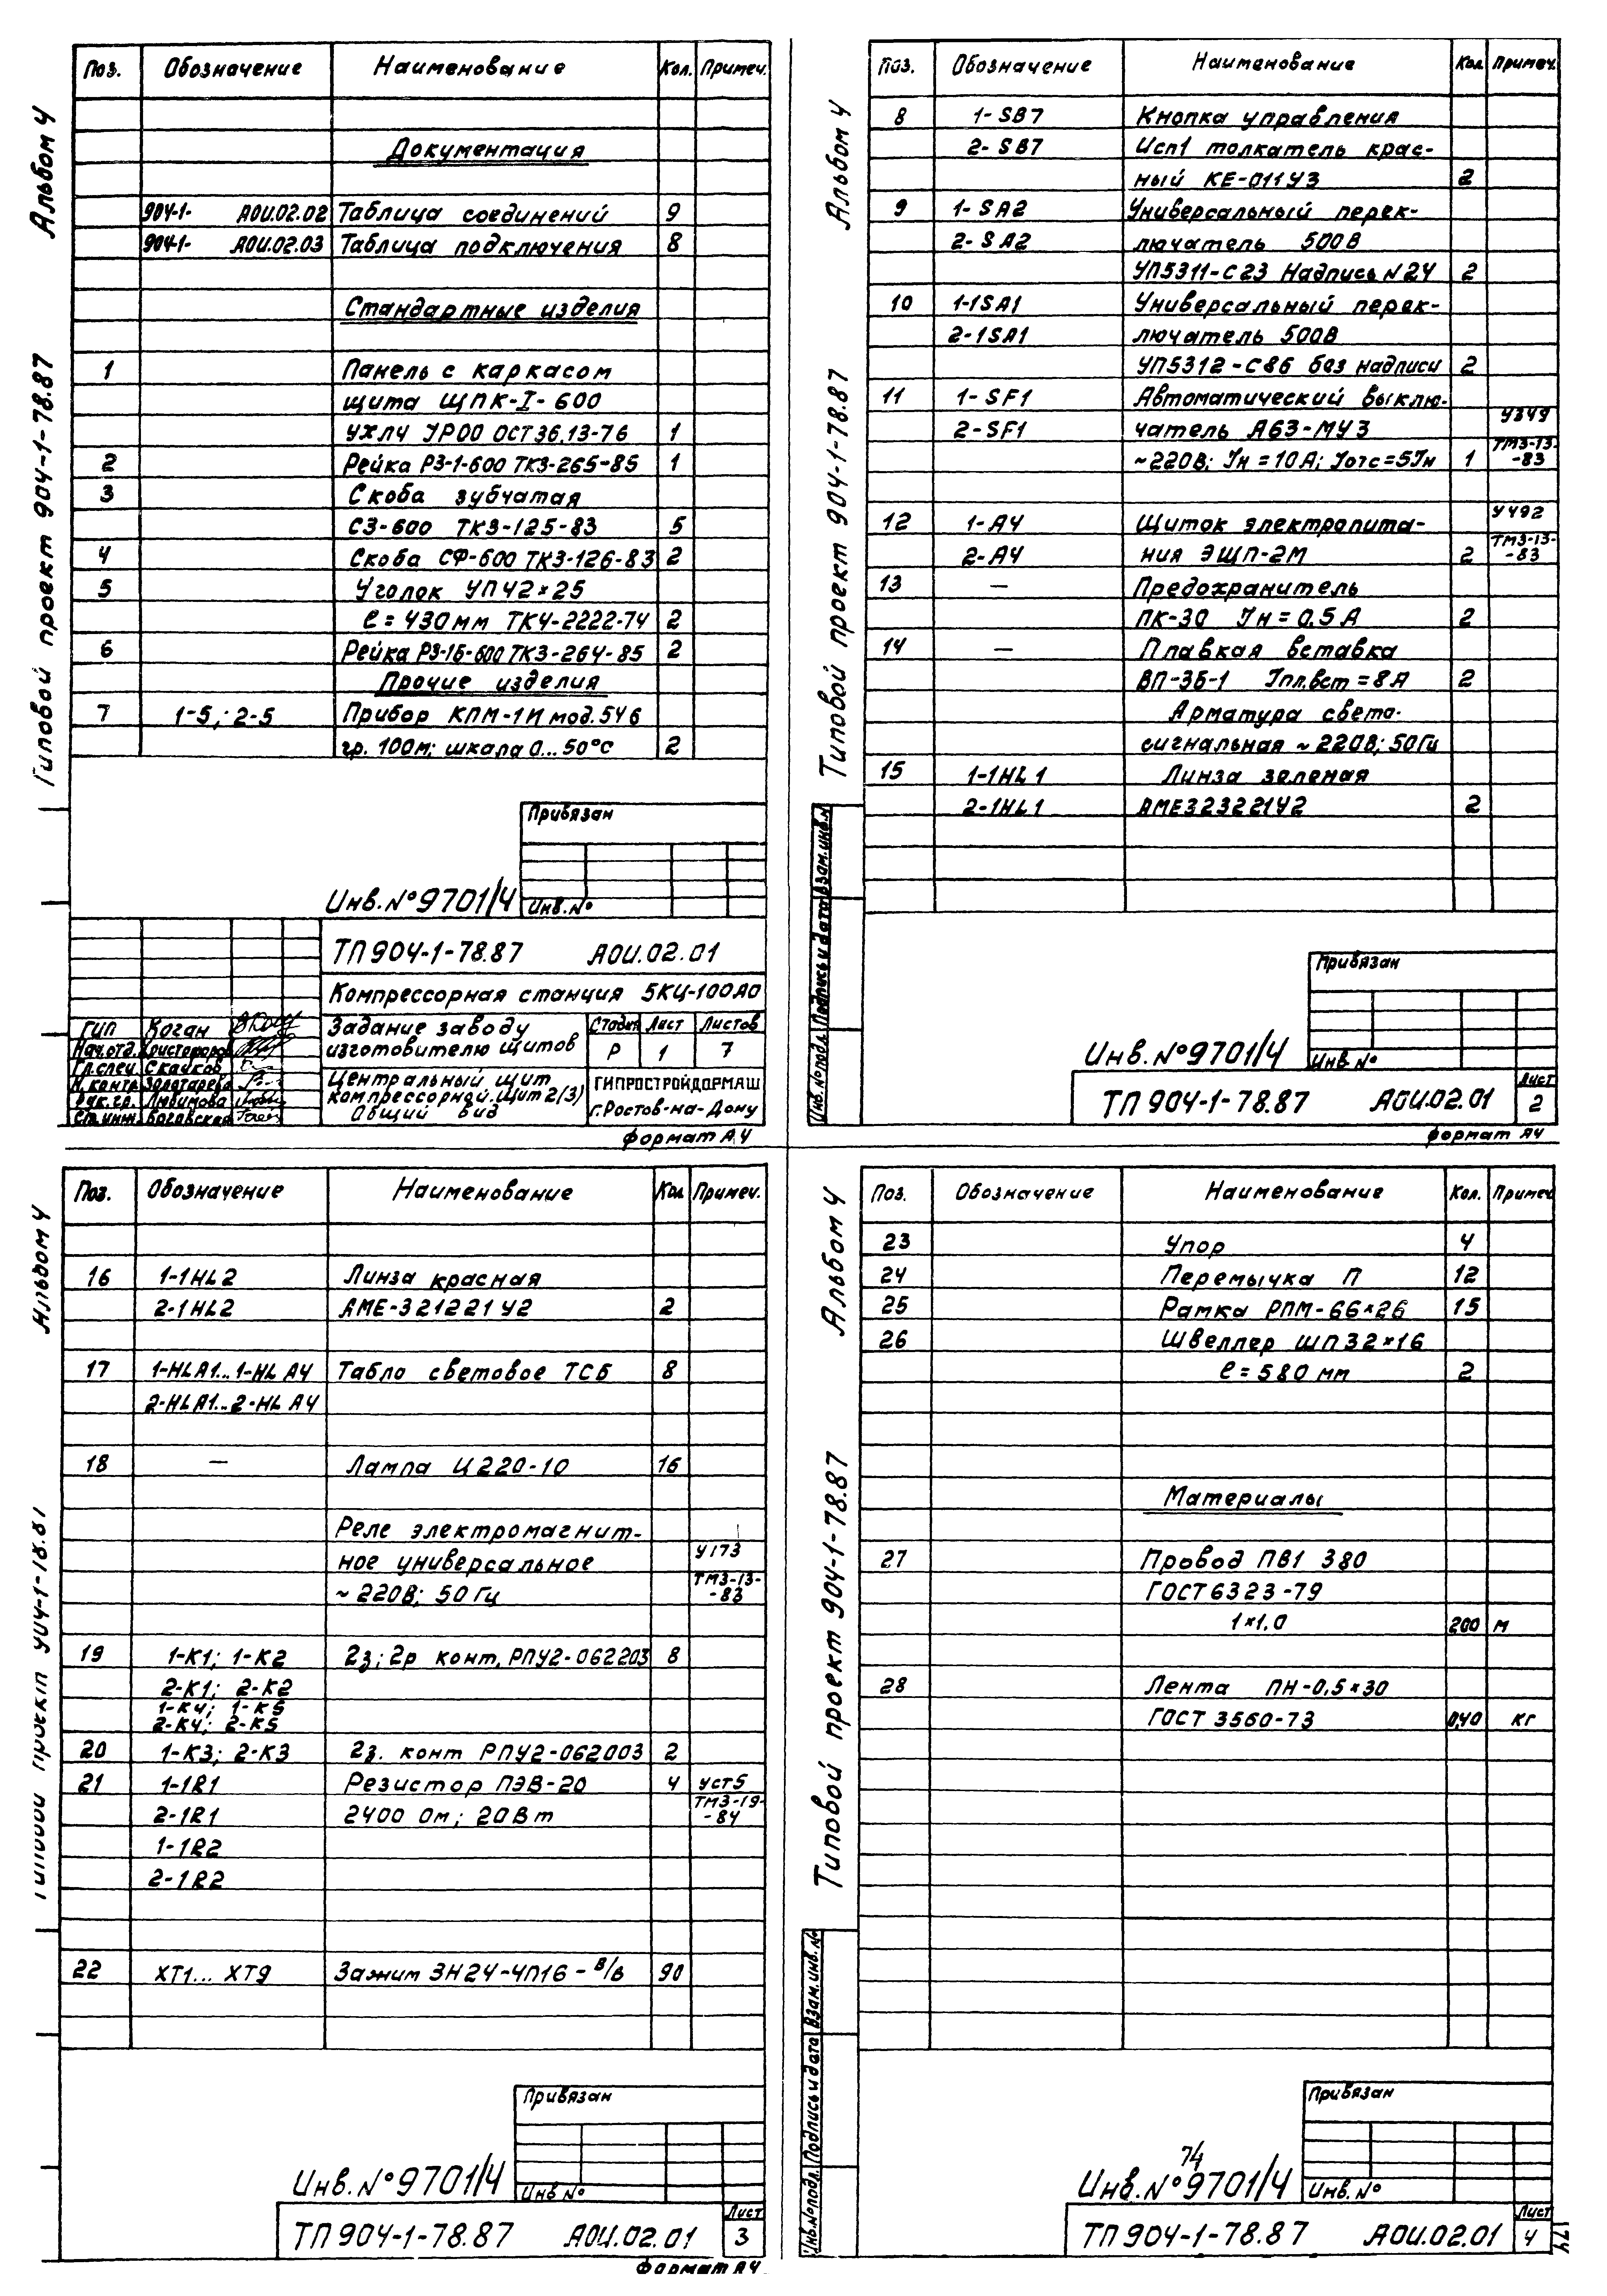 Альбом 4
Типовой проект 904-1-78.87
Поз. Обозначение Наименование Кол. Примеч.
Документация
904-1- АОИ.02.02 Таблица соединений 9
904-1- АОИ.02.03 Таблица подключения 8
Стандартные изделия
1 Панель с каркасом
щита ЩПК-I-600
УХЛ4 УР00 ОСТ36.13-76 1
2 Рейка РЗ-1-600 ТК3-265-85 1
3 Скоба зубчатая
СЗ-600 ТК3-125-83 5
4 Скоба СФ-600 ТК3-126-83 2
5 Уголок УП42×25
ℓ = 430мм ТК4-2222-74 2
6 Рейка РЗ-1Б-600 ТК3-264-85 2
Прочие изделия
7 1-5; 2-5 Прибор КПМ-1И мод.546
гр. 100м; шкала 0...50°С 2
Привязан
Инв.№9701/4 Инв.№
ТП904-1-78.87 АОИ.02.01
Компрессорная станция 5КЦ-100А0
ГИП Коган
Нач.отд. Христофоров
Гл.спец Скачков
Н.контр Золотарева
Рук.гр. Любимова
Ст.инж. Боговская
Задание заводу
изготовителю щитов
Стадия Лист Листов
Р 1 7
Центральный щит
компрессорной.Щит2/3)
Общий вид
ГИПРОСТРОЙДОРМАШ
г.Ростов-на-Дону
формат А4
Альбом 4
Типовой проект 904-1-78.87
Поз. Обозначение Наименование Кол. Примеч.
8 1-SB7 Кнопка управления
2-SB7 Исп1 толкатель крас-
ный КЕ-011У3 2
9 1-SA2 Универсальный перек-
2-SA2 лючатель 500В
УП5311-С23 Надпись №24 2
10 1-1SA1 Универсальный перек-
2-1SA1 лючатель 500В
УП5312-С86 без надписи 2
11 1-SF1 Автоматический выклю-
2-SF1 чатель А63-МУ3 У349
~220В; Jн = 10А; Jотс=5Jн 1 ТМ3-13-
-83
12 1-А4 Щиток электропита- У492
2-А4 ния ЭЩП-2М 2 ТМ3-13-
-83
13 — Предохранитель
ПК-30 Jн = 0.5А 2
14 — Плавкая вставка
ВП-3Б-1 Jпл.вст = 8А 2
Арматура свето-
сигнальная ~220В; 50Гц
15 1-1HL1 Линза зеленая
2-1HL1 АМЕ323221У2 2
Инв.№подл. Подпись и дата Взам.инв.№
Привязан
Инв.№9701/4 Инв №
ТП904-1-78.87 АОИ.02.01 Лист 2
формат А4
Альбом 4
Типовой проект 904-1-78.87
Поз. Обозначение Наименование Кол Примеч.
16 1-1HL2 Линза красная
2-1HL2 АМЕ-321221У2 2
17 1-HLA1...1-HLA4 Табло световое ТСБ 8
2-HLA1...2-HLA4
18 — Лампа Ц220-10 16
Реле электромагнит-
ное универсальное У173
~220В; 50Гц ТМ3-13-
-83
19 1-К1; 1-К2 2з; 2р конт. РПУ2-062203 8
2-К1; 2-К2
1-К4; 1-К5
2-К4; 2-К5
20 1-К3; 2-К3 2з. конт РПУ2-062003 2
21 1-1R1 Резистор ПЭВ-20 4 уст5
2-1R1 2400 Ом; 20Вт ТМ3-19-
-84
1-1R2
2-1R2
22 ХТ1... ХТ9 Зажим ЗН24-4П16-В/В 90
Привязан
Инв.№9701/4 Инв №
ТП904-1-78.87 АОИ.02.01 Лист 3
формат А4
Альбом 4
Типовой проект 904-1-78.87
Поз. Обозначение Наименование Кол. Примеч
23 Упор 4
24 Перемычка П 12
25 Рамка РПМ-66×26 15
26 Швеллер ШП32×16
ℓ = 580 мм 2
Материалы
27 Провод ПВ1 380
ГОСТ6323-79
1×1.0 200 м
28 Лента ПН-0,5×30
ГОСТ 3560-73 0,40 кг
Инв.№подл. Подпись и дата Взам.инв.№
Привязан
74
Инв.№9701/4 Инв.№
ТП904-1-78.87 АОИ.02.01 Лист 4
174